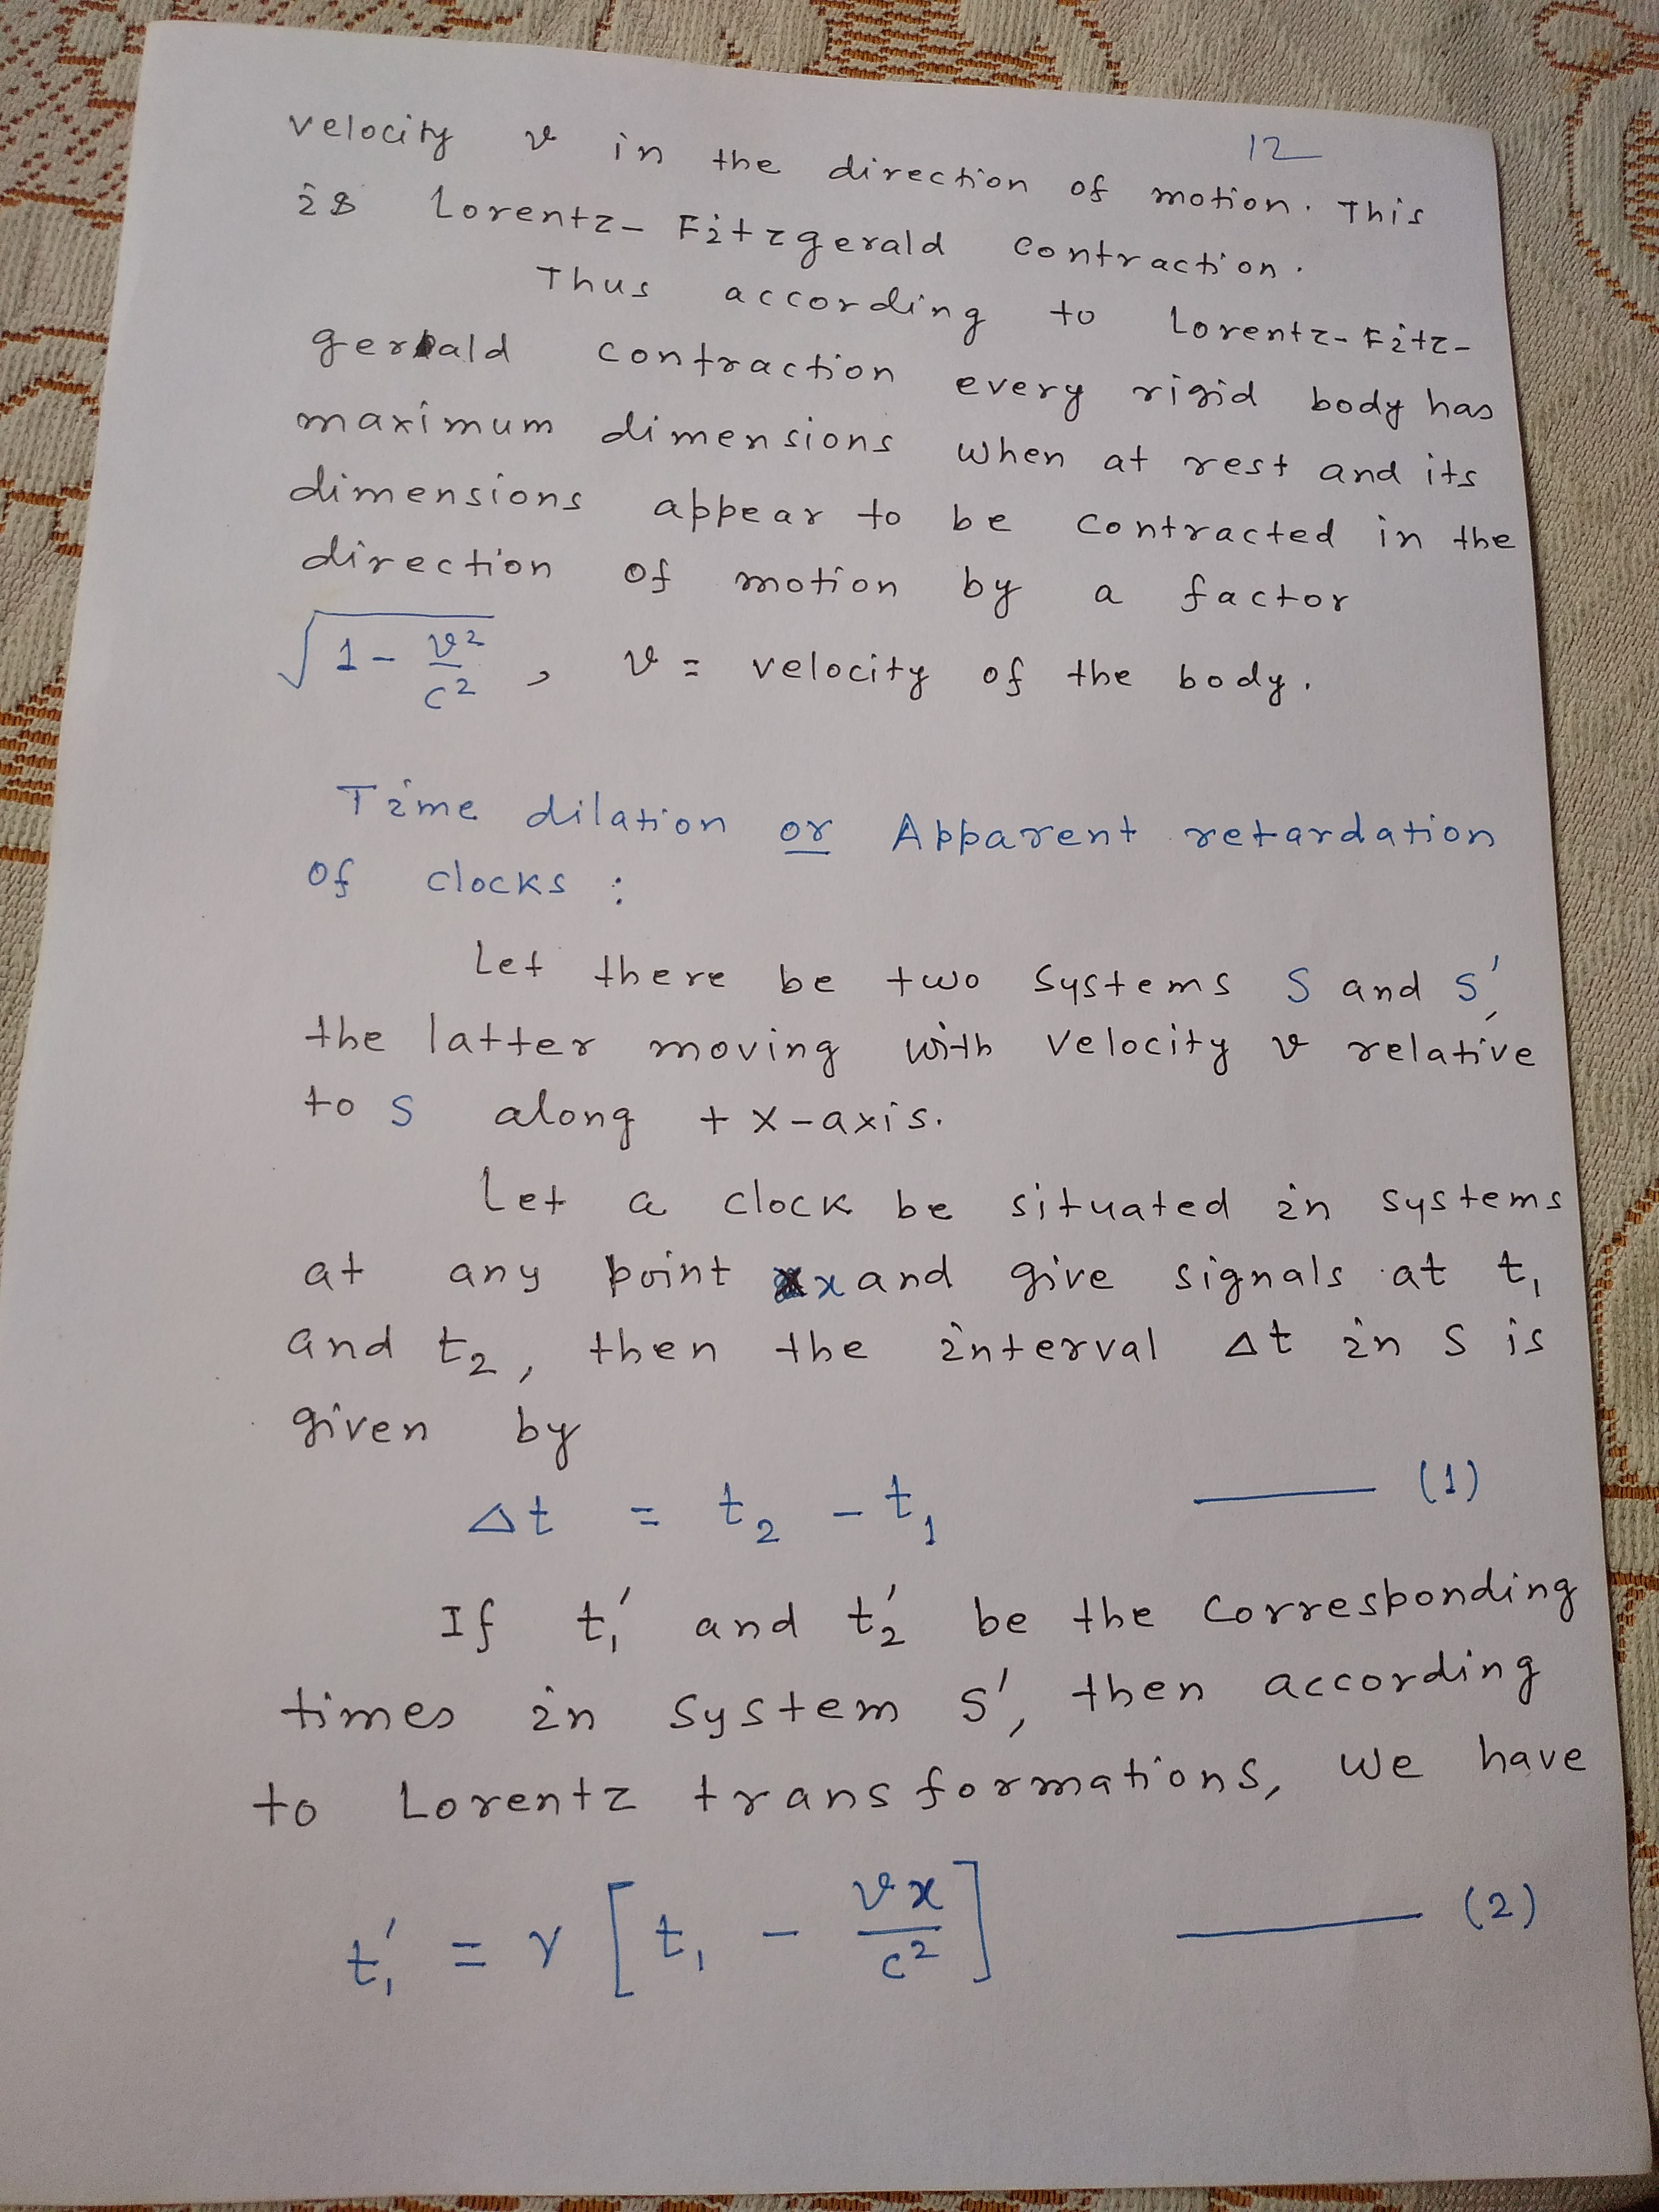 12
velocity v in the direction of motion. This
is Lorentz-Fitzgerald contraction.
Thus according to Lorentz-Fitz-
gerald contraction every rigid body has
maximum dimensions when at rest and its
dimensions appear to be contracted in the
direction of motion by a factor
√(1 - v²/c²), v = velocity of the body.
Time dilation or Apparent retardation
of clocks :
Let there be two systems S and S',
the latter moving with velocity v relative
to S along + X-axis.
Let a clock be situated in systems
at any point x and give signals at t₁
and t₂, then the interval Δt in S is
given by
Δt = t₂ - t₁ —— (1)
If t₁' and t₂' be the corresponding
times in system S', then according
to Lorentz transformations, we have
t₁' = γ [t₁ - vx/c²] —— (2)